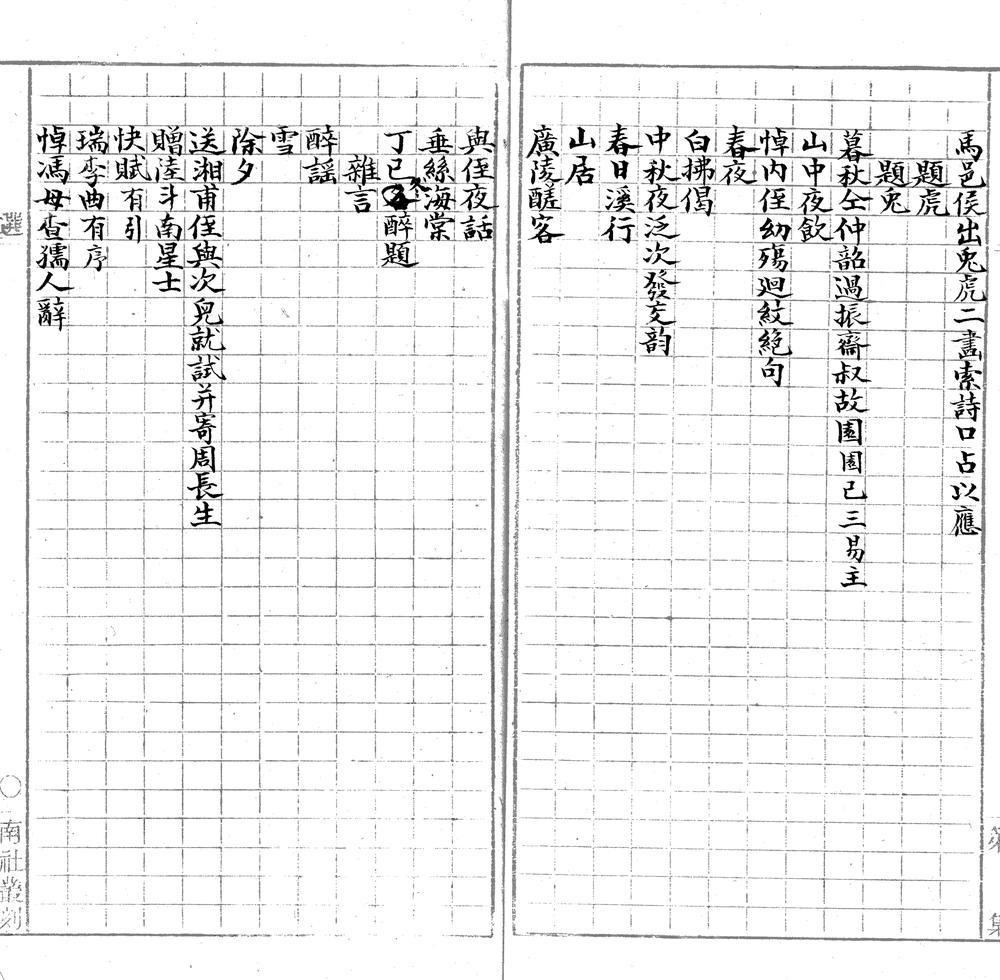 馬邑侯出兎虎二畫索詩口占以應
題虎
題兎
暮秋仝仲韶過振齋叔故園園已三易主
山中夜飲
悼內侄幼殤迴紋絕句
春夜
白拂偈
中秋夜泛次發交韵
春日溪行
山居
廣陵醝客
集
與侄夜話
垂絲海棠
丁巳冬醉題
雜言
醉謡
雪
除夕
送湘甫侄與次兒就試并寄周長生
贈陸斗南星士
快賦有引
瑞李曲有序
悼馮母查孺人辭
選
〇南社叢刻